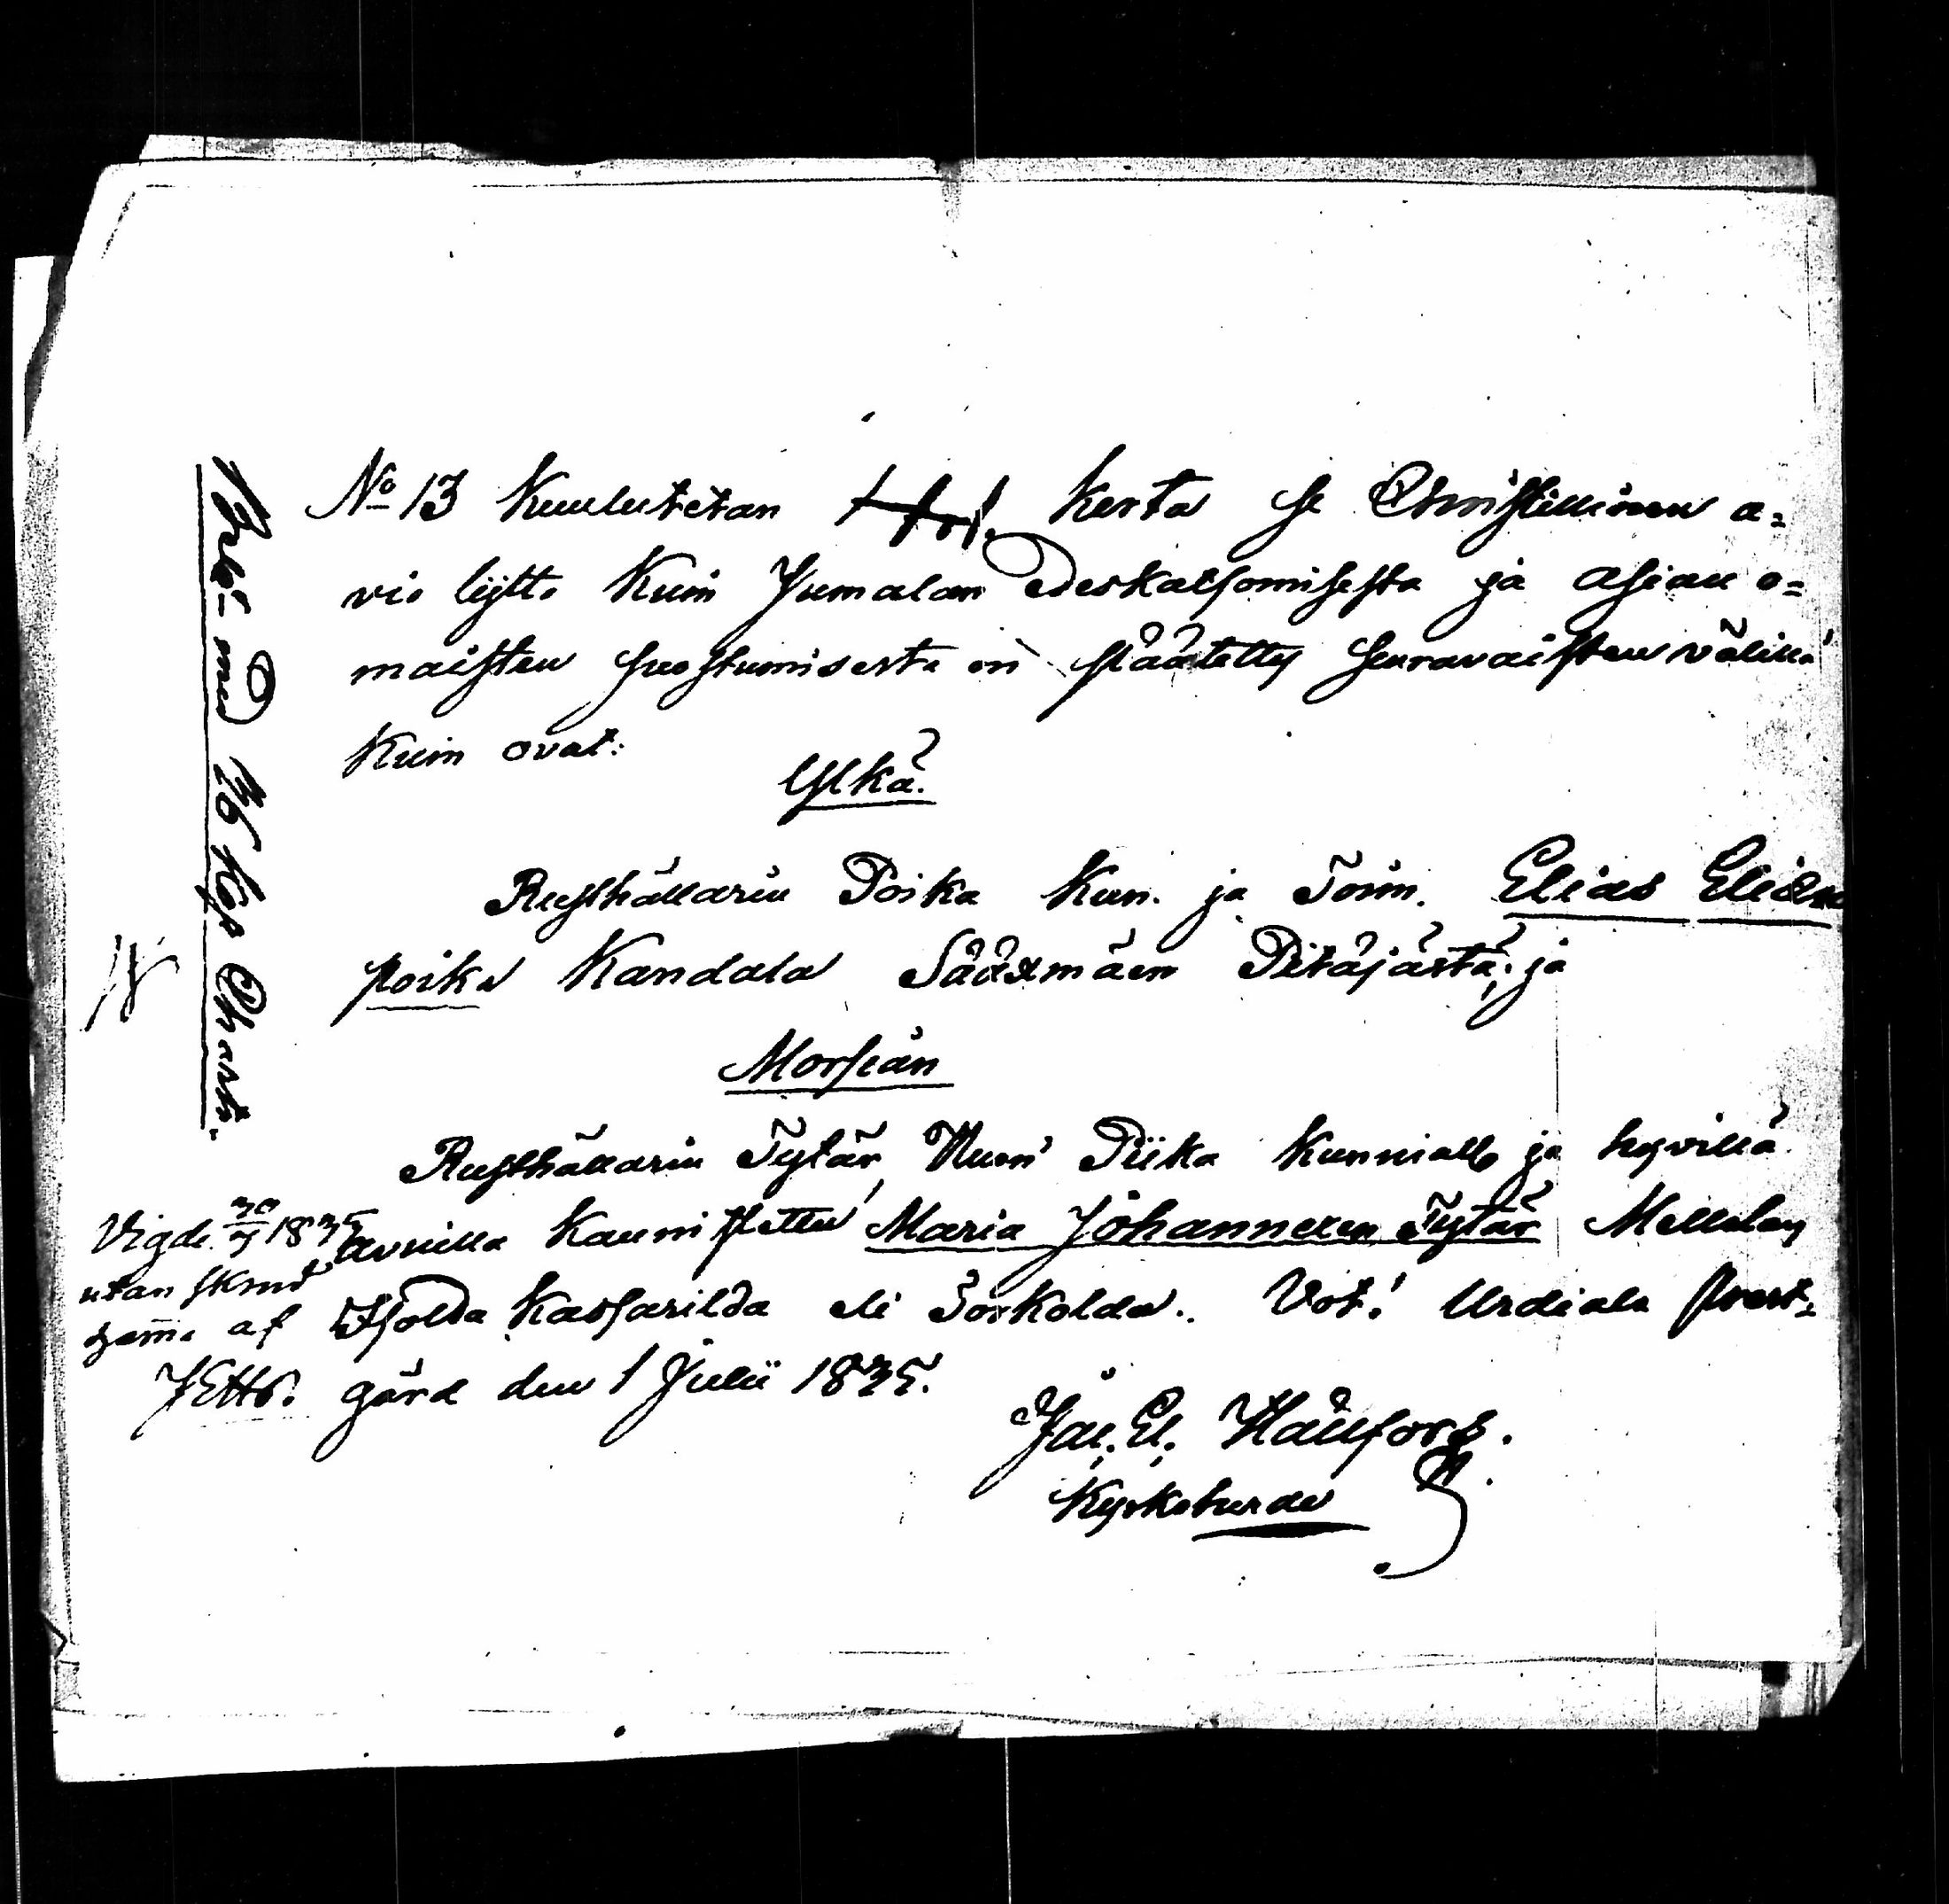 No 13 Kuulutetan kerta se Christillinen a=
vio lijtto kuin Jumalan Edeskatsomisesta ja asian o=
maisten suostumisesta on päätetty seuravaisten välillä
kuin ovat:
Ylkä.
Rusthållarin Poika Kun. ja Toim. Elias Elias
poika Kandala Sääxmäen Pitäjästä; ja
Morsian
Rusthållarin Tytär, Piika kunnialla ja hyvillä
avuilla kaunistettu Maria Johannexen Tytär Mellolan
Isolda Kassarilda eli Torkolda. Vot! Urdiala Prest=
gård den 1 Julii 1835.
Jac. El. Hällfors.
Kyrkoherde
Vigde 1835
utan
af